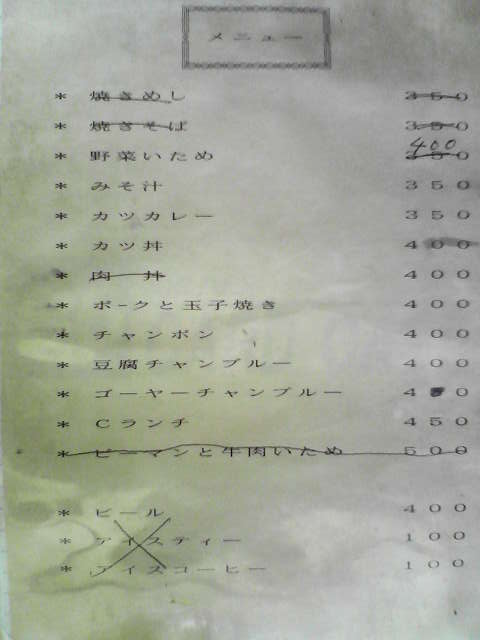 メニュー
* 焼きめし 350
* 焼きそば 350
400
* 野菜いため 350
* みそ汁 350
* カツカレー 350
* カツ丼 400
* 肉丼 400
* ポークと玉子焼き 400
* チャンポン 400
* 豆腐チャンプルー 400
* ゴーヤーチャンプルー 4 0
* Cランチ 450
* ピーマンと牛肉いため 500
* ビール 400
* アイスティー 100
* アイスコーヒー 100